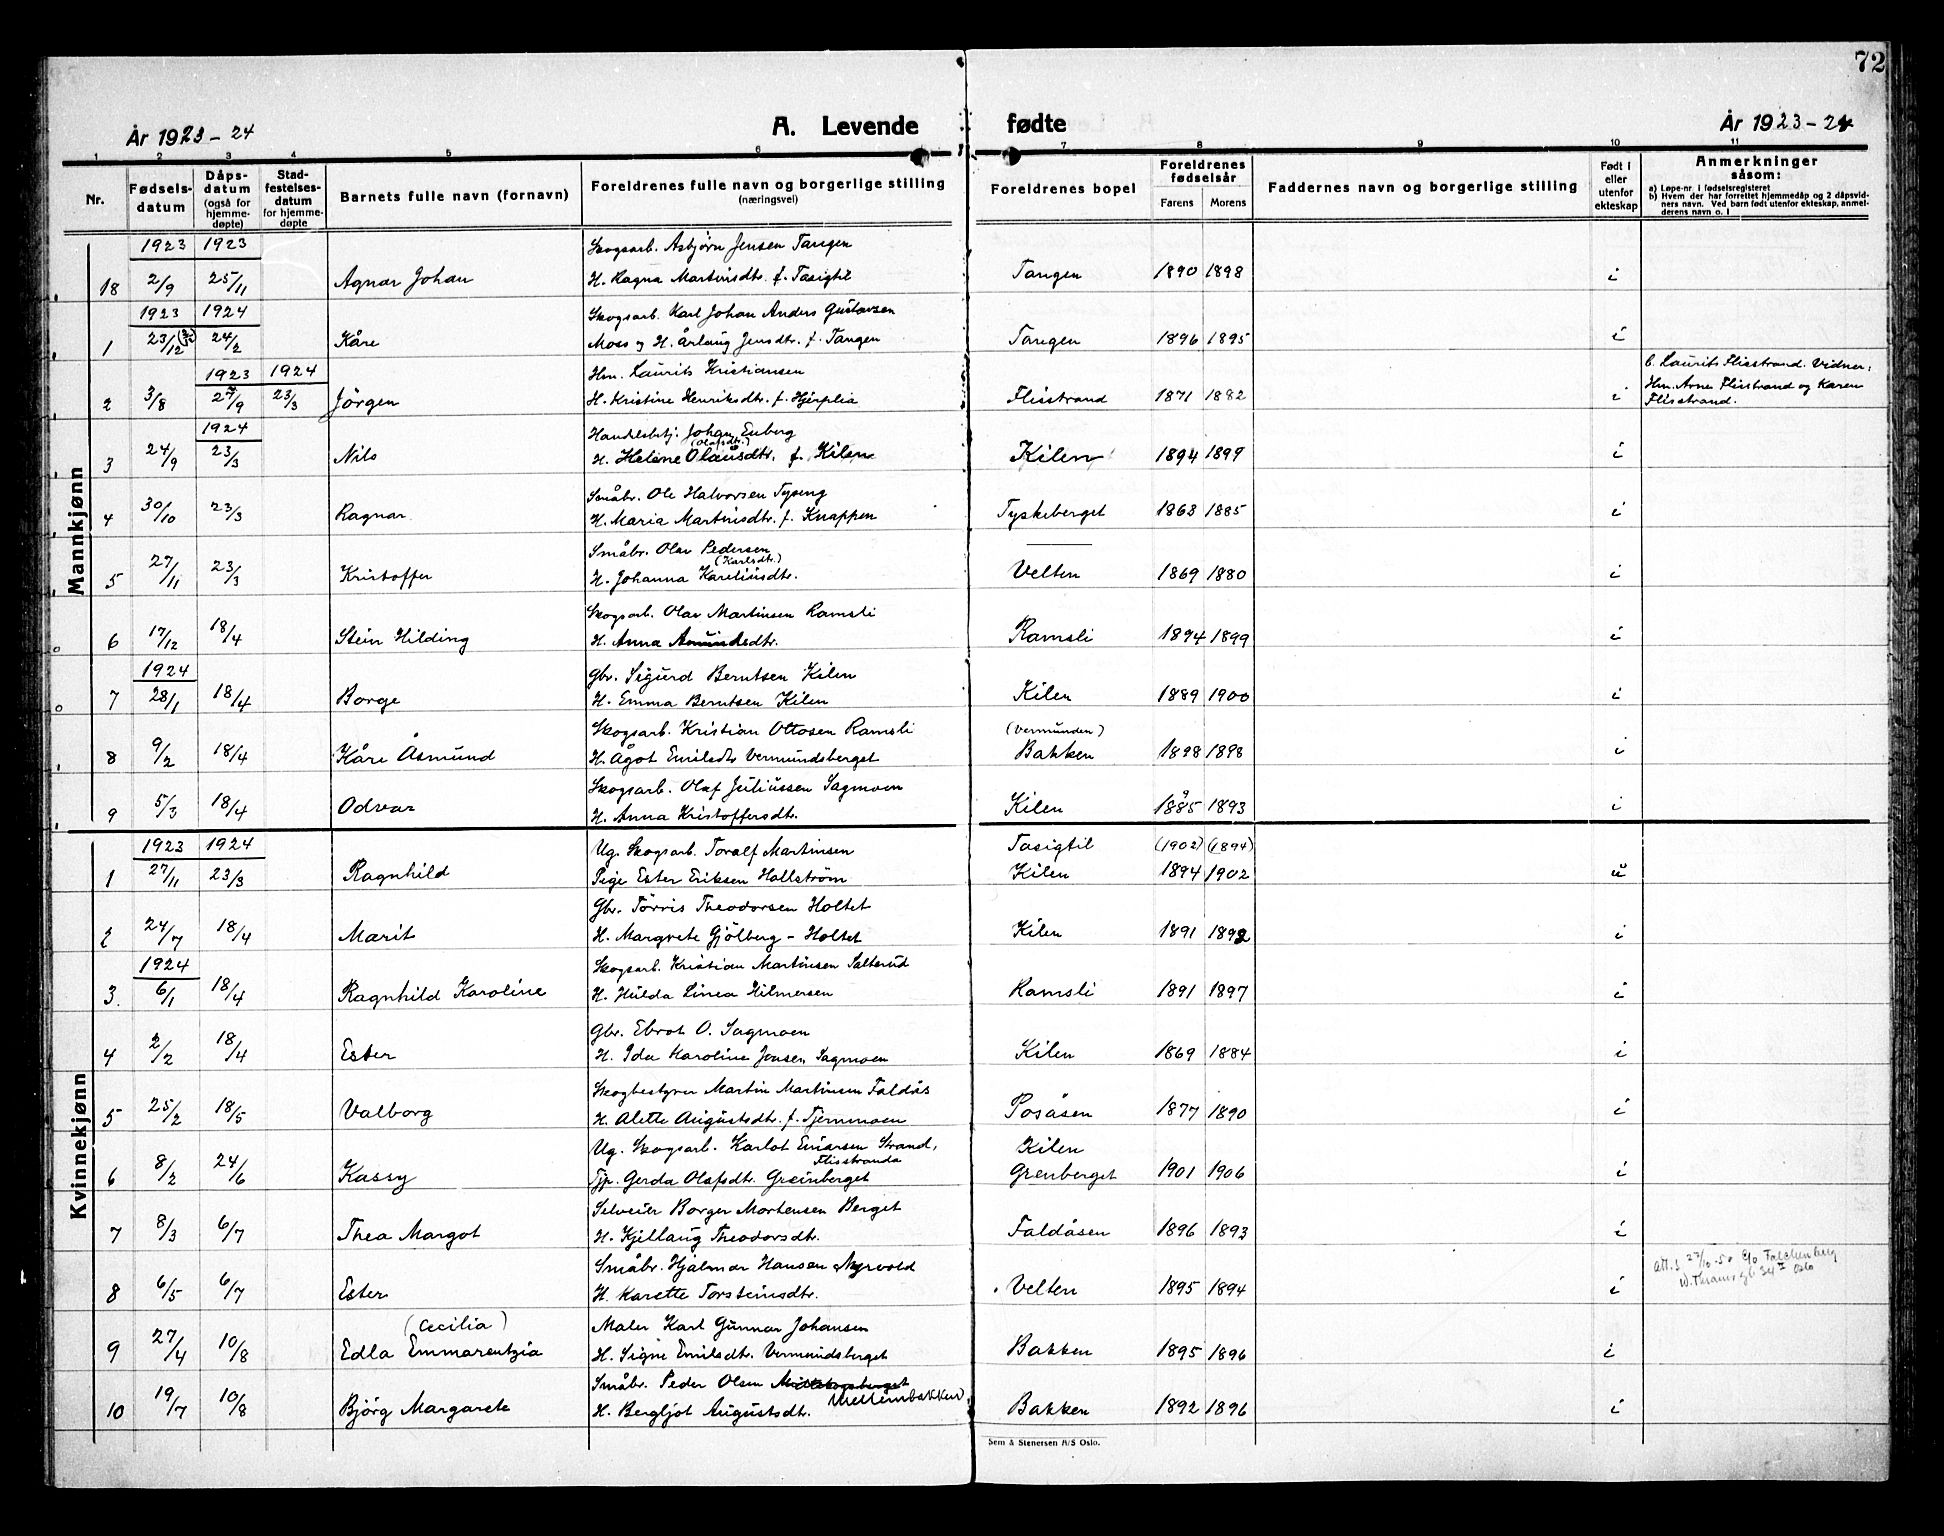 72
År 1923-24
A. Levende fødte
År 1923-24
1 2 3 4 5 6 7 8 9 10 11
Nr. Fødsels-datum Dåps-datum (også for hjemme-døpte) Stad-festelses-datum for hjemme-døpte Barnets fulle navn (fornavn) Foreldrenes fulle navn og borgerlige stilling (næringsvei) Foreldrenes bopel Foreldrenes fødselsår Farens Morens Faddernes navn og borgerlige stilling Født i eller utenfor ekteskap Anmerkninger såsom:
a) Løpe-nr. i fødselsregisteret
b) Hvem der har forrettet hjemmedåp og 2 dåpsvid-
ners navn. Ved barn født utenfor ekteskap, anmel-
derens navn o. l
Mannkjønn
1923 1923 Skogsarb. Asbjørn Jensen Tangen
18 2/9 25/11 Agnar Johan H. Ragna Martinsdtr. f. Tasigtil Tangen 1890 1898 i
1923 1924 Skogsarb. Karl Johan Anders Gustavsen
1 23/12 24/2 Kåre Moss og H. Årlaug Jensdtr. f. Tangen Tangen 1896 1895 i
1923 1924 Hm. Laurits Kristiansen b. Laurits Flisstrand. Vidner:
2 3/8 27/9 23/3 Jörgen H. Kristine Henriksdtr. f. Hjerplia Flisstrand 1871 1882 i Hm. Arne Flisstrand og Karen
Flisstrand.
1924 Handelsbetj. Johan Enberg
(Olafsdtr.)
3 24/9 23/3 Nils H. Helene Olausdtr. f. Kilen Kilen 1894 1899 i
Småbr. Ole Halvorsen Tyseng
4 30/10 23/3 Ragnar H. Maria Martinsdtr. f. Knappen Tyskeberget 1863 1885 i
Småbr. Olav Pedersen
(Karlsdtr.)
5 27/11 23/3 Kristoffer H. Johanna Karelinsdtr. Velten 1869 1880 i
Skogsarb. Olav Martinsen Ramsli
6 17/12 18/4 Stein Hilding H. Anna Amundsdtr. Ramsli 1894 1899 i
1924 Gbr. Sigurd Berntsen Kilen
7 28/1 18/4 Borge H. Emma Berntsen Kilen Kilen 1889 1900 i
Skogsarb. Kristian Ottosen Ramsli (Vermunden)
8 9/2 18/4 Kåre Åsmund H. Ågot Emilsdtr Vermundsberget Bakken 1898 1898 i
Skogsarb. Olaf Juliussen Sagmoen
9 5/3 18/4 Odvar H. Anna Kristoffersdtr. Kilen 1885 1893 i
Kvinnekjønn
1923 1924 Ug. Skogsarb. Toralf Martinsen Tasigtil (1902) (1894)
1 27/11 23/3 Ragnhild Pige Ester Eriksen Hallström Kilen 1894 1902 u
Gbr. Törris Theodorsen Holtet
2 24/7 18/4 Marit H. Margrete Gjölberg - Holtet Kilen 1891 1892 i
1924 Skogsarb. Kristian Martinsen Sæterud
3. 6/1 18/4 Ragnhild Karoline H. Hulda Linea Hilmersen Ramsli 1891 1897 i
Gbr. Ebrot O. Sagmoen
4 2/2 18/4 Ester H. Ida Karoline Jensen Sagmoen Kilen 1869 1884 i
Skogbestyrer Martin Martinsen Faldås
5 25/2 18/5 Valborg H. Alette Augustsdtr. f. Tjernmoen Posåsen 1877 1890 i
Ug. Skogsarb. Karlot Einarsen Strand, Kilen
Flisstranda
6 8/2 24/6 Kassy Tjp. Gerda Olafsdtr. Greinberget Grenberget 1901 1906 i
Selveier Borger Mortensen Berget
7 8/3 6/7 Thea Margot H. Kjellaug Theodorsdtr. Faldåsen 1896 1893 i
Småbr. Hjalmar Hansen Myrvold att. s 27/10-50 c/o Falchenberg
8 6/5 6/7 Ester H. Karette Torsteinsdtr. Velten 1895 1894 i W. Thranesgt. 34 I Oslo
(Cecilia) Maler Karl Gunnar Johansen
9 27/4 10/8 Edla Emmarentzia H. Signe Emilsdtr. Vermundsberget Bakken 1895 1896 i
Småbr. Peder Olsen Mellembakken
10 19/7 10/8 Björg Margarete H. Bergljot Augustsdt. Bakken 1892 1896 i
Sem & Stenersen A/S Oslo.